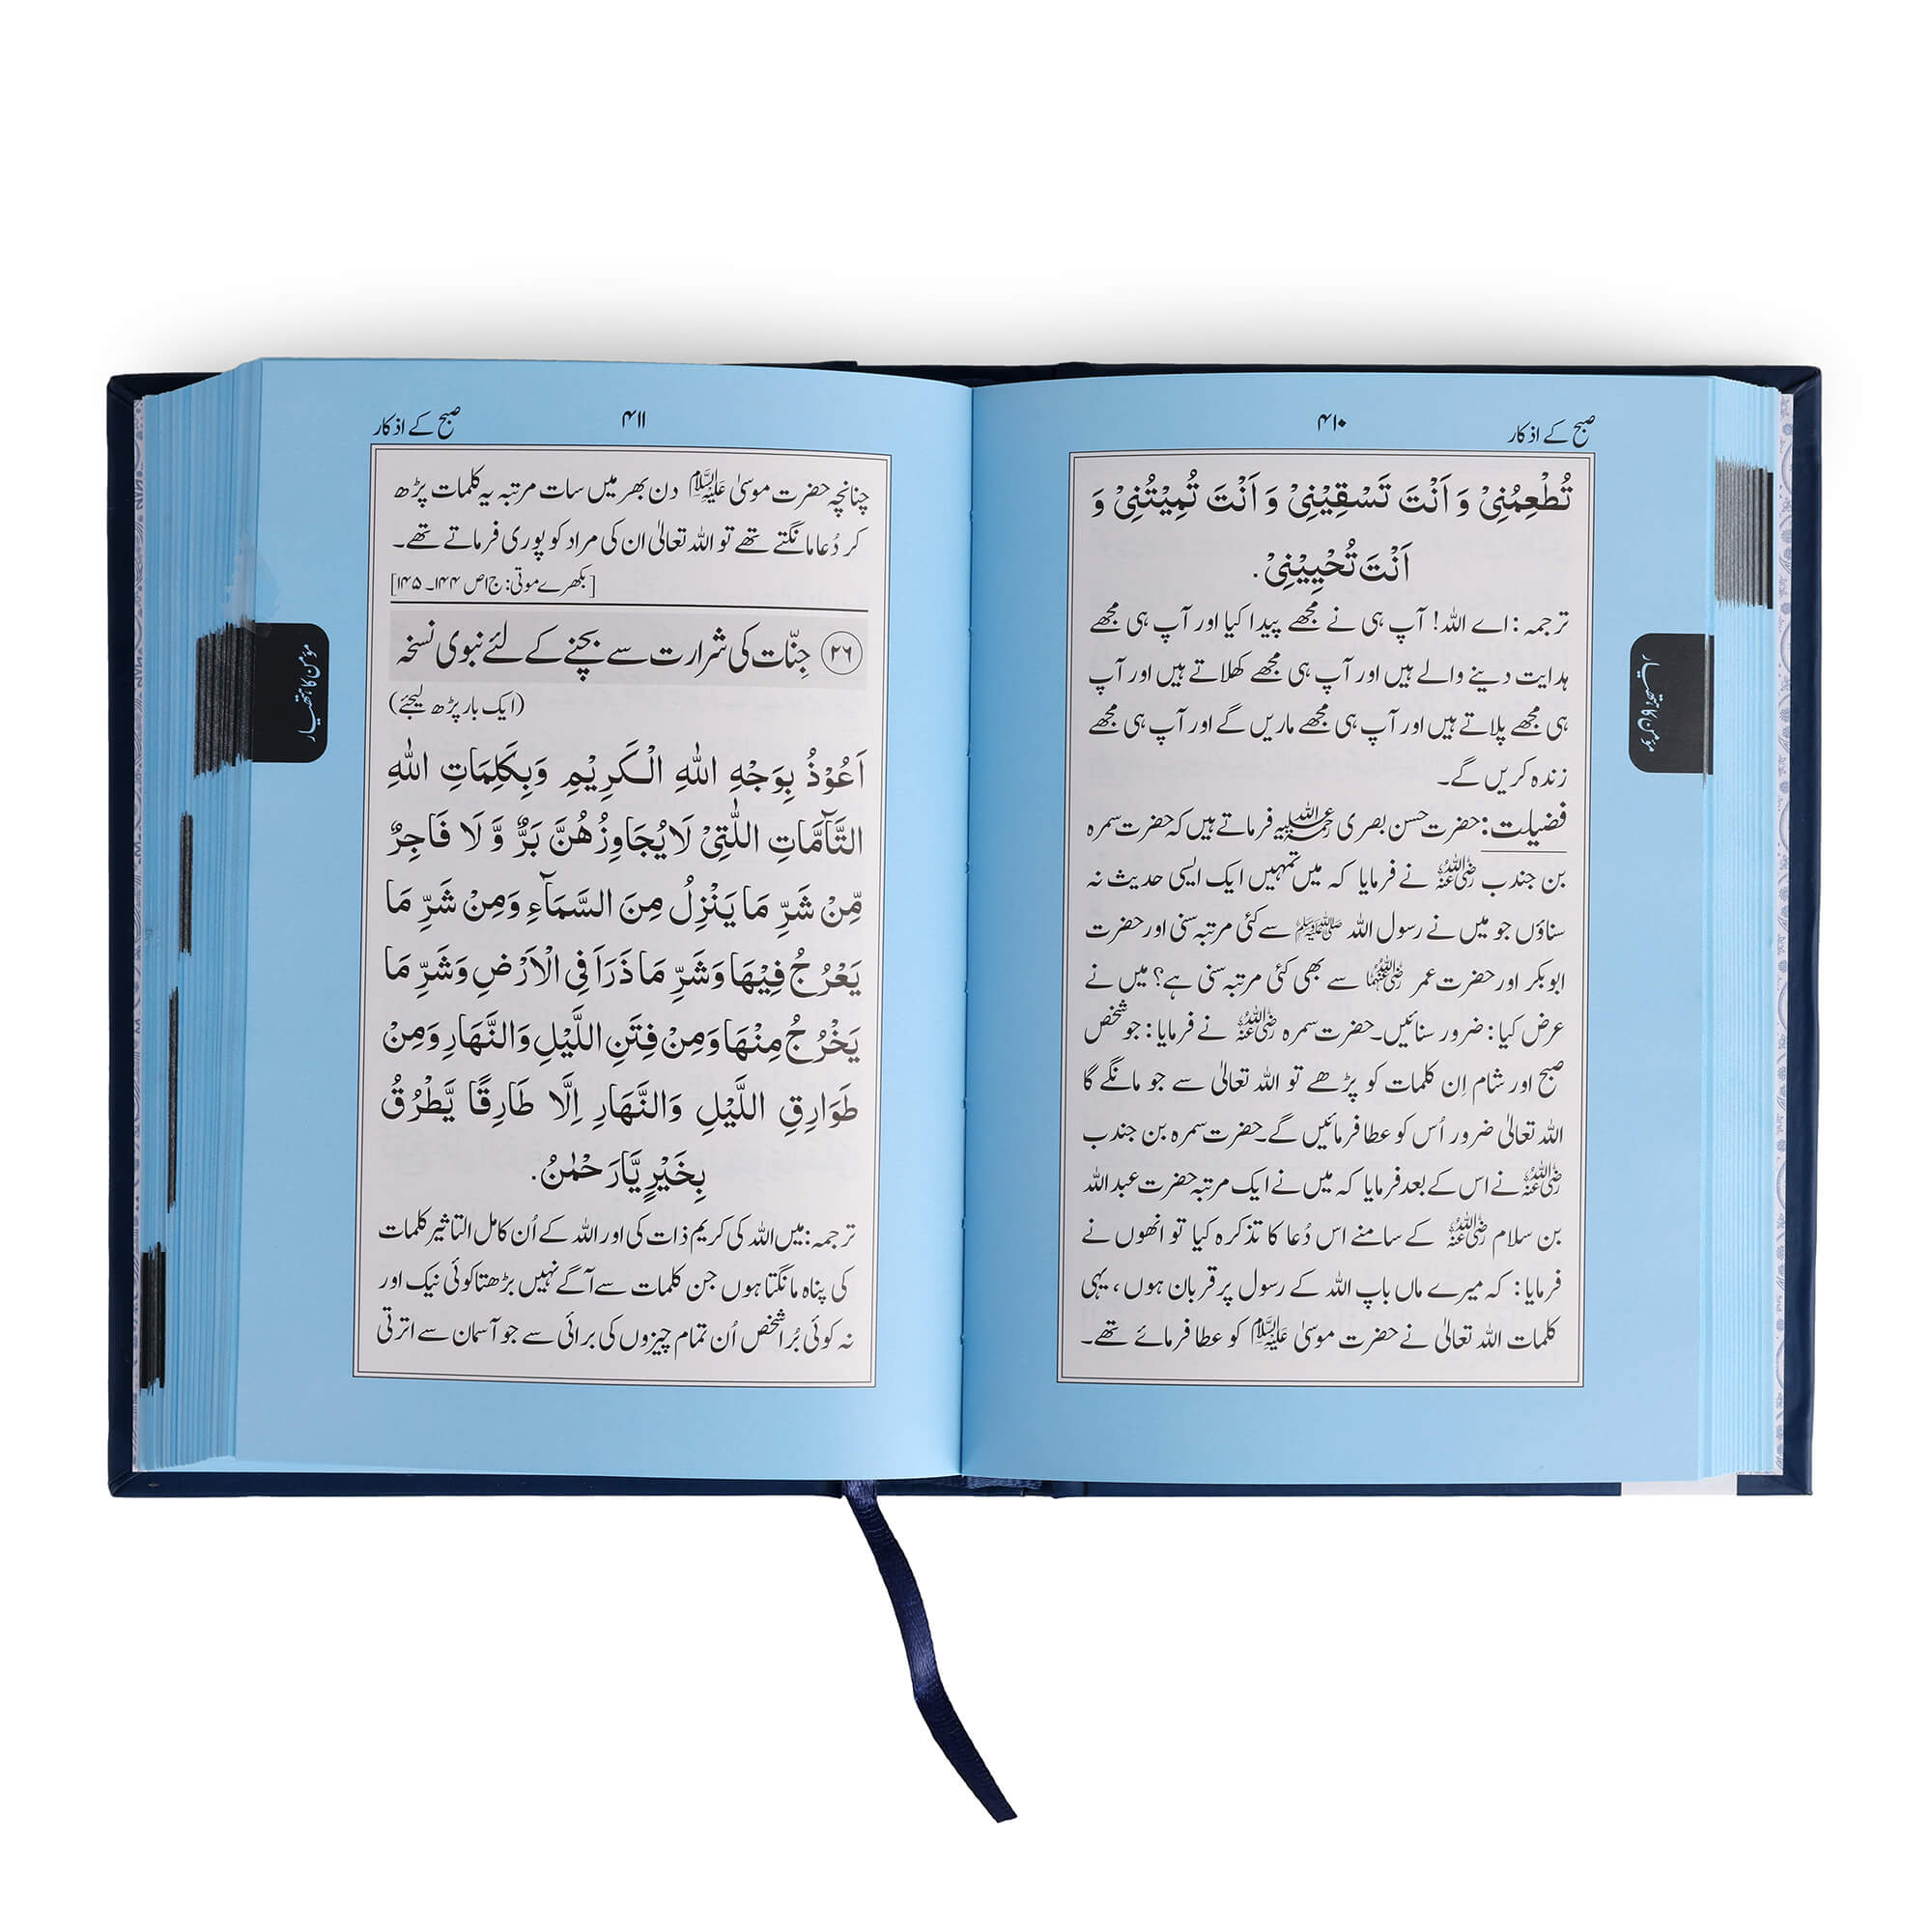 صبح کے اذکار
۴۱۰
تُطْعِمُنِیْ وَ اَنْتَ تَسْقِیْنِیْ وَ اَنْتَ تُمِیْتُنِیْ وَ
اَنْتَ تُحْیِیْنِیْ.
ترجمہ: اے اللہ! آپ ہی نے مجھے پیدا کیا اور آپ ہی مجھے
ہدایت دینے والے ہیں اور آپ ہی مجھے کھلاتے ہیں اور آپ
ہی مجھے پلاتے ہیں اور آپ ہی مجھے ماریں گے اور آپ ہی مجھے
زندہ کریں گے۔
فضیلت: حضرت حسن بصری رحمۃ اللہ علیہ فرماتے ہیں کہ حضرت سمرہ
بن جندب رضی اللہ عنہ نے فرمایا کہ میں تمہیں ایک ایسی حدیث نہ
سناؤں جو میں نے رسول اللہ ﷺ سے کئی مرتبہ سنی اور حضرت
ابوبکر اور حضرت عمر رضی اللہ عنہما سے بھی کئی مرتبہ سنی ہے؟ میں نے
عرض کیا: ضرور سنائیں۔ حضرت سمرہ رضی اللہ عنہ نے فرمایا: جو شخص
صبح اور شام اِن کلمات کو پڑھے تو اللہ تعالیٰ سے جو مانگے گا
اللہ تعالیٰ ضرور اُس کو عطا فرمائیں گے۔ حضرت سمرہ بن جندب
رضی اللہ عنہ نے اس کے بعد فرمایا کہ میں نے ایک مرتبہ حضرت عبداللہ
بن سلام رضی اللہ عنہ کے سامنے اس دُعا کا تذکرہ کیا تو انھوں نے
فرمایا: کہ میرے ماں باپ اللہ کے رسول پر قربان ہوں، یہی
کلمات اللہ تعالیٰ نے حضرت موسیٰ علیہ السلام کو عطا فرمائے تھے۔
مؤمن کا ہتھیار
صبح کے اذکار
۴۱۱
چنانچہ حضرت موسیٰ علیہ السلام دن بھر میں سات مرتبہ یہ کلمات پڑھ
کر دُعا مانگتے تھے تو اللہ تعالیٰ ان کی مراد کو پوری فرماتے تھے۔
[بکھرے موتی: ج۱ص ۱۴۴۔ ۱۴۵]
۲۶ جِنّات کی شرارت سے بچنے کے لئے نبوی نسخہ
(ایک بار پڑھ لیجئے)
اَعُوْذُ بِوَجْهِ اللهِ الْکَرِیْمِ وَبِکَلِمَاتِ اللهِ
التَّآمَّاتِ اللّٰتِیْ لَا یُجَاوِزُهُنَّ بَرٌّ وَّ لَا فَاجِرٌ
مِّنْ شَرِّ مَا یَنْزِلُ مِنَ السَّمَآءِ وَمِنْ شَرِّ مَا
یَعْرُجُ فِیْهَا وَشَرِّ مَا ذَرَاَ فِی الْاَرْضِ وَشَرِّ مَا
یَخْرُجُ مِنْهَا وَمِنْ فِتَنِ اللَّیْلِ وَالنَّهَارِ وَمِنْ
طَوَارِقِ اللَّیْلِ وَالنَّهَارِ اِلَّا طَارِقًا یَّطْرُقُ
بِخَیْرٍ یَّارَحْمٰنُ.
ترجمہ: میں اللہ کی کریم ذات کی اور اللہ کے اُن کامل التاثیر کلمات
کی پناہ مانگتا ہوں جن کلمات سے آگے نہیں بڑھتا کوئی نیک اور
نہ کوئی بُرا شخص اُن تمام چیزوں کی برائی سے جو آسمان سے اترتی
مؤمن کا ہتھیار